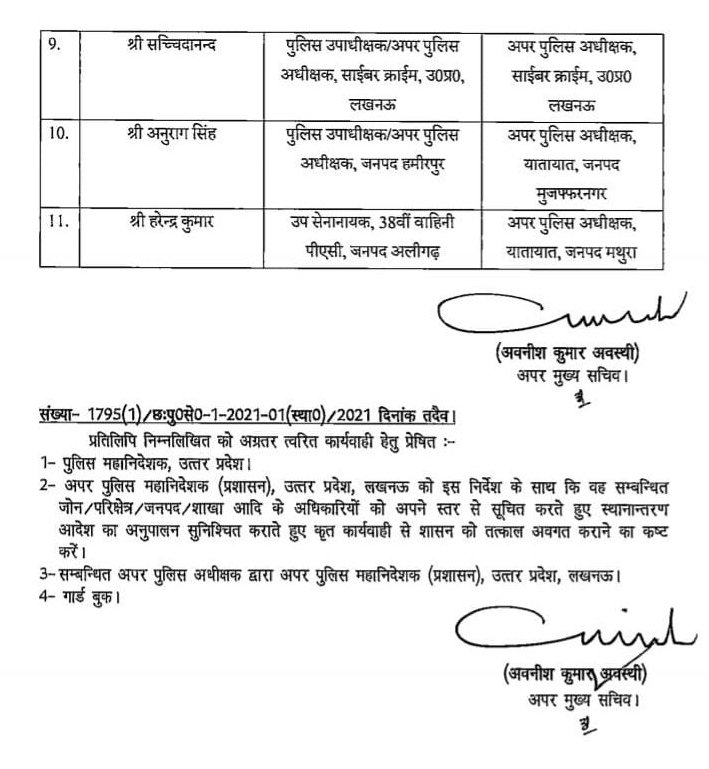 9. श्री सच्चिदानन्द पुलिस उपाधीक्षक/अपर पुलिस अधीक्षक, साईबर क्राईम, उ0प्र0, लखनऊ अपर पुलिस अधीक्षक, साईबर क्राईम, उ0प्र0 लखनऊ
10. श्री अनुराग सिंह पुलिस उपाधीक्षक/अपर पुलिस अधीक्षक, जनपद हमीरपुर अपर पुलिस अधीक्षक, यातायात, जनपद मुजफ्फरनगर
11. श्री हरेन्द्र कुमार उप सेनानायक, 38वीं वाहिनी पीएसी, जनपद अलीगढ़ अपर पुलिस अधीक्षक, यातायात, जनपद मथुरा
(अवनीश कुमार अवस्थी)
अपर मुख्य सचिव।
संख्या- 1795(1)/छःपु0से0-1-2021-01(स्था0)/2021 दिनांक तदैव।
प्रतिलिपि निम्नलिखित को अग्रतर त्वरित कार्यवाही हेतु प्रेषित :-
1- पुलिस महानिदेशक, उत्तर प्रदेश।
2- अपर पुलिस महानिदेशक (प्रशासन), उत्तर प्रदेश, लखनऊ को इस निर्देश के साथ कि वह सम्बन्धित
जोन/परिक्षेत्र/जनपद/शाखा आदि के अधिकारियों को अपने स्तर से सूचित करते हुए स्थानान्तरण
आदेश का अनुपालन सुनिश्चित कराते हुए कृत कार्यवाही से शासन को तत्काल अवगत कराने का कष्ट
करें।
3-सम्बन्धित अपर पुलिस अधीक्षक द्वारा अपर पुलिस महानिदेशक (प्रशासन), उत्तर प्रदेश, लखनऊ।
4- गार्ड बुक।
(अवनीश कुमार अवस्थी)
अपर मुख्य सचिव।